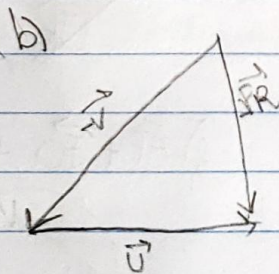 b)
V⃗
V⃗R
U⃗